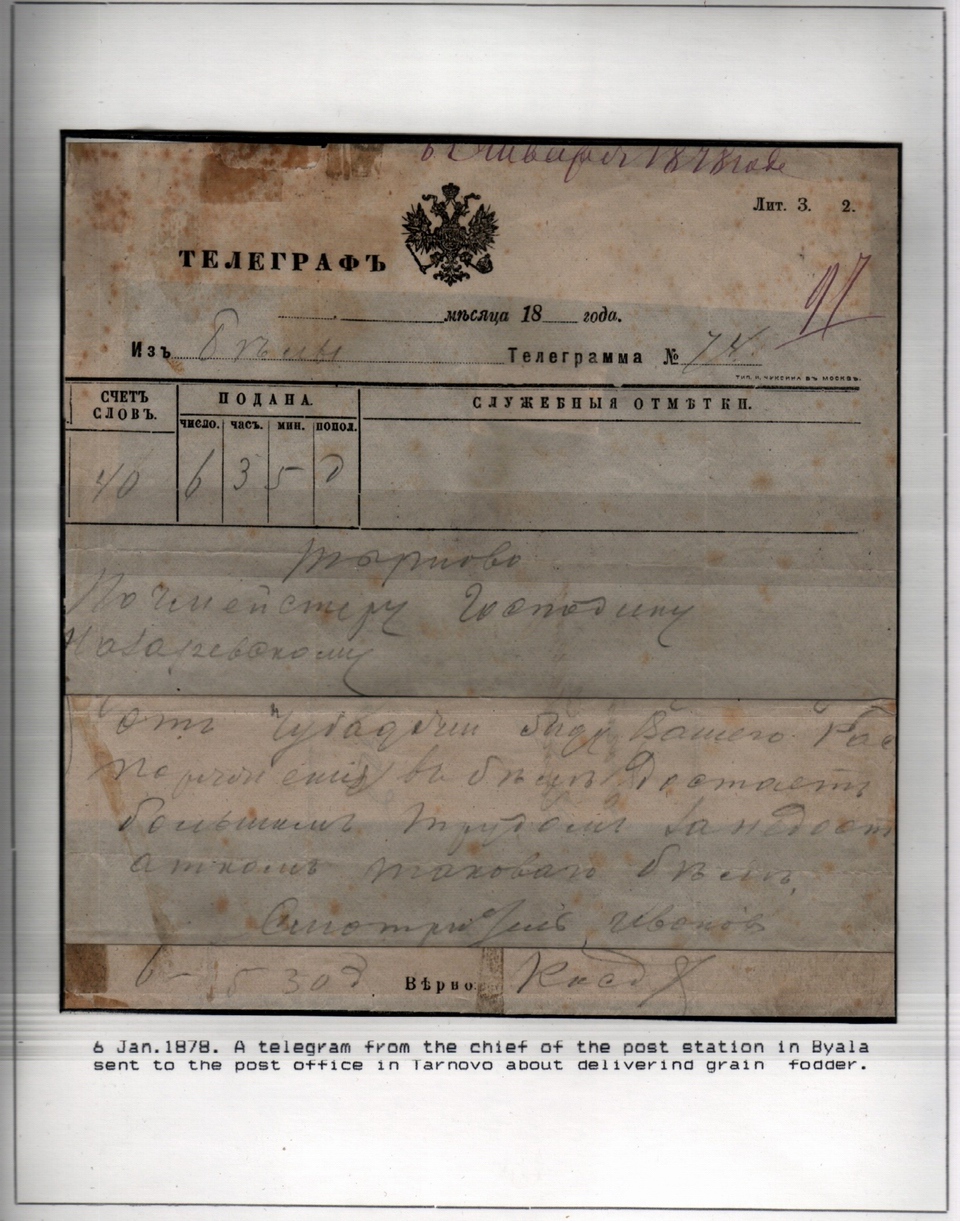 6 Января 1878 года
Лит. З. 2.
ТЕЛЕГРАФЪ
97
мѣсяца 18 года.
Изъ Бѣлы Телеграмма № 74.
ТИП. П. ЧУКСИНА ВЪ МОСКВѢ.
СЧЕТЪ СЛОВЪ. ПОДАНА. СЛУЖЕБНЫЯ ОТМѢТКИ.
число. часъ. мин. попол.
40 6 3 5 д
Търново
Почмейстеру Господину
отъ Вашего Рас
въ достаетъ
большимъ трудомъ за недост
аткомъ таковаго
Смотритель Ивановъ
6 - 5 30 д Вѣрно
6 Jan.1878. A telegram from the chief of the post station in Byala
sent to the post office in Tarnovo about deliverind grain fodder.